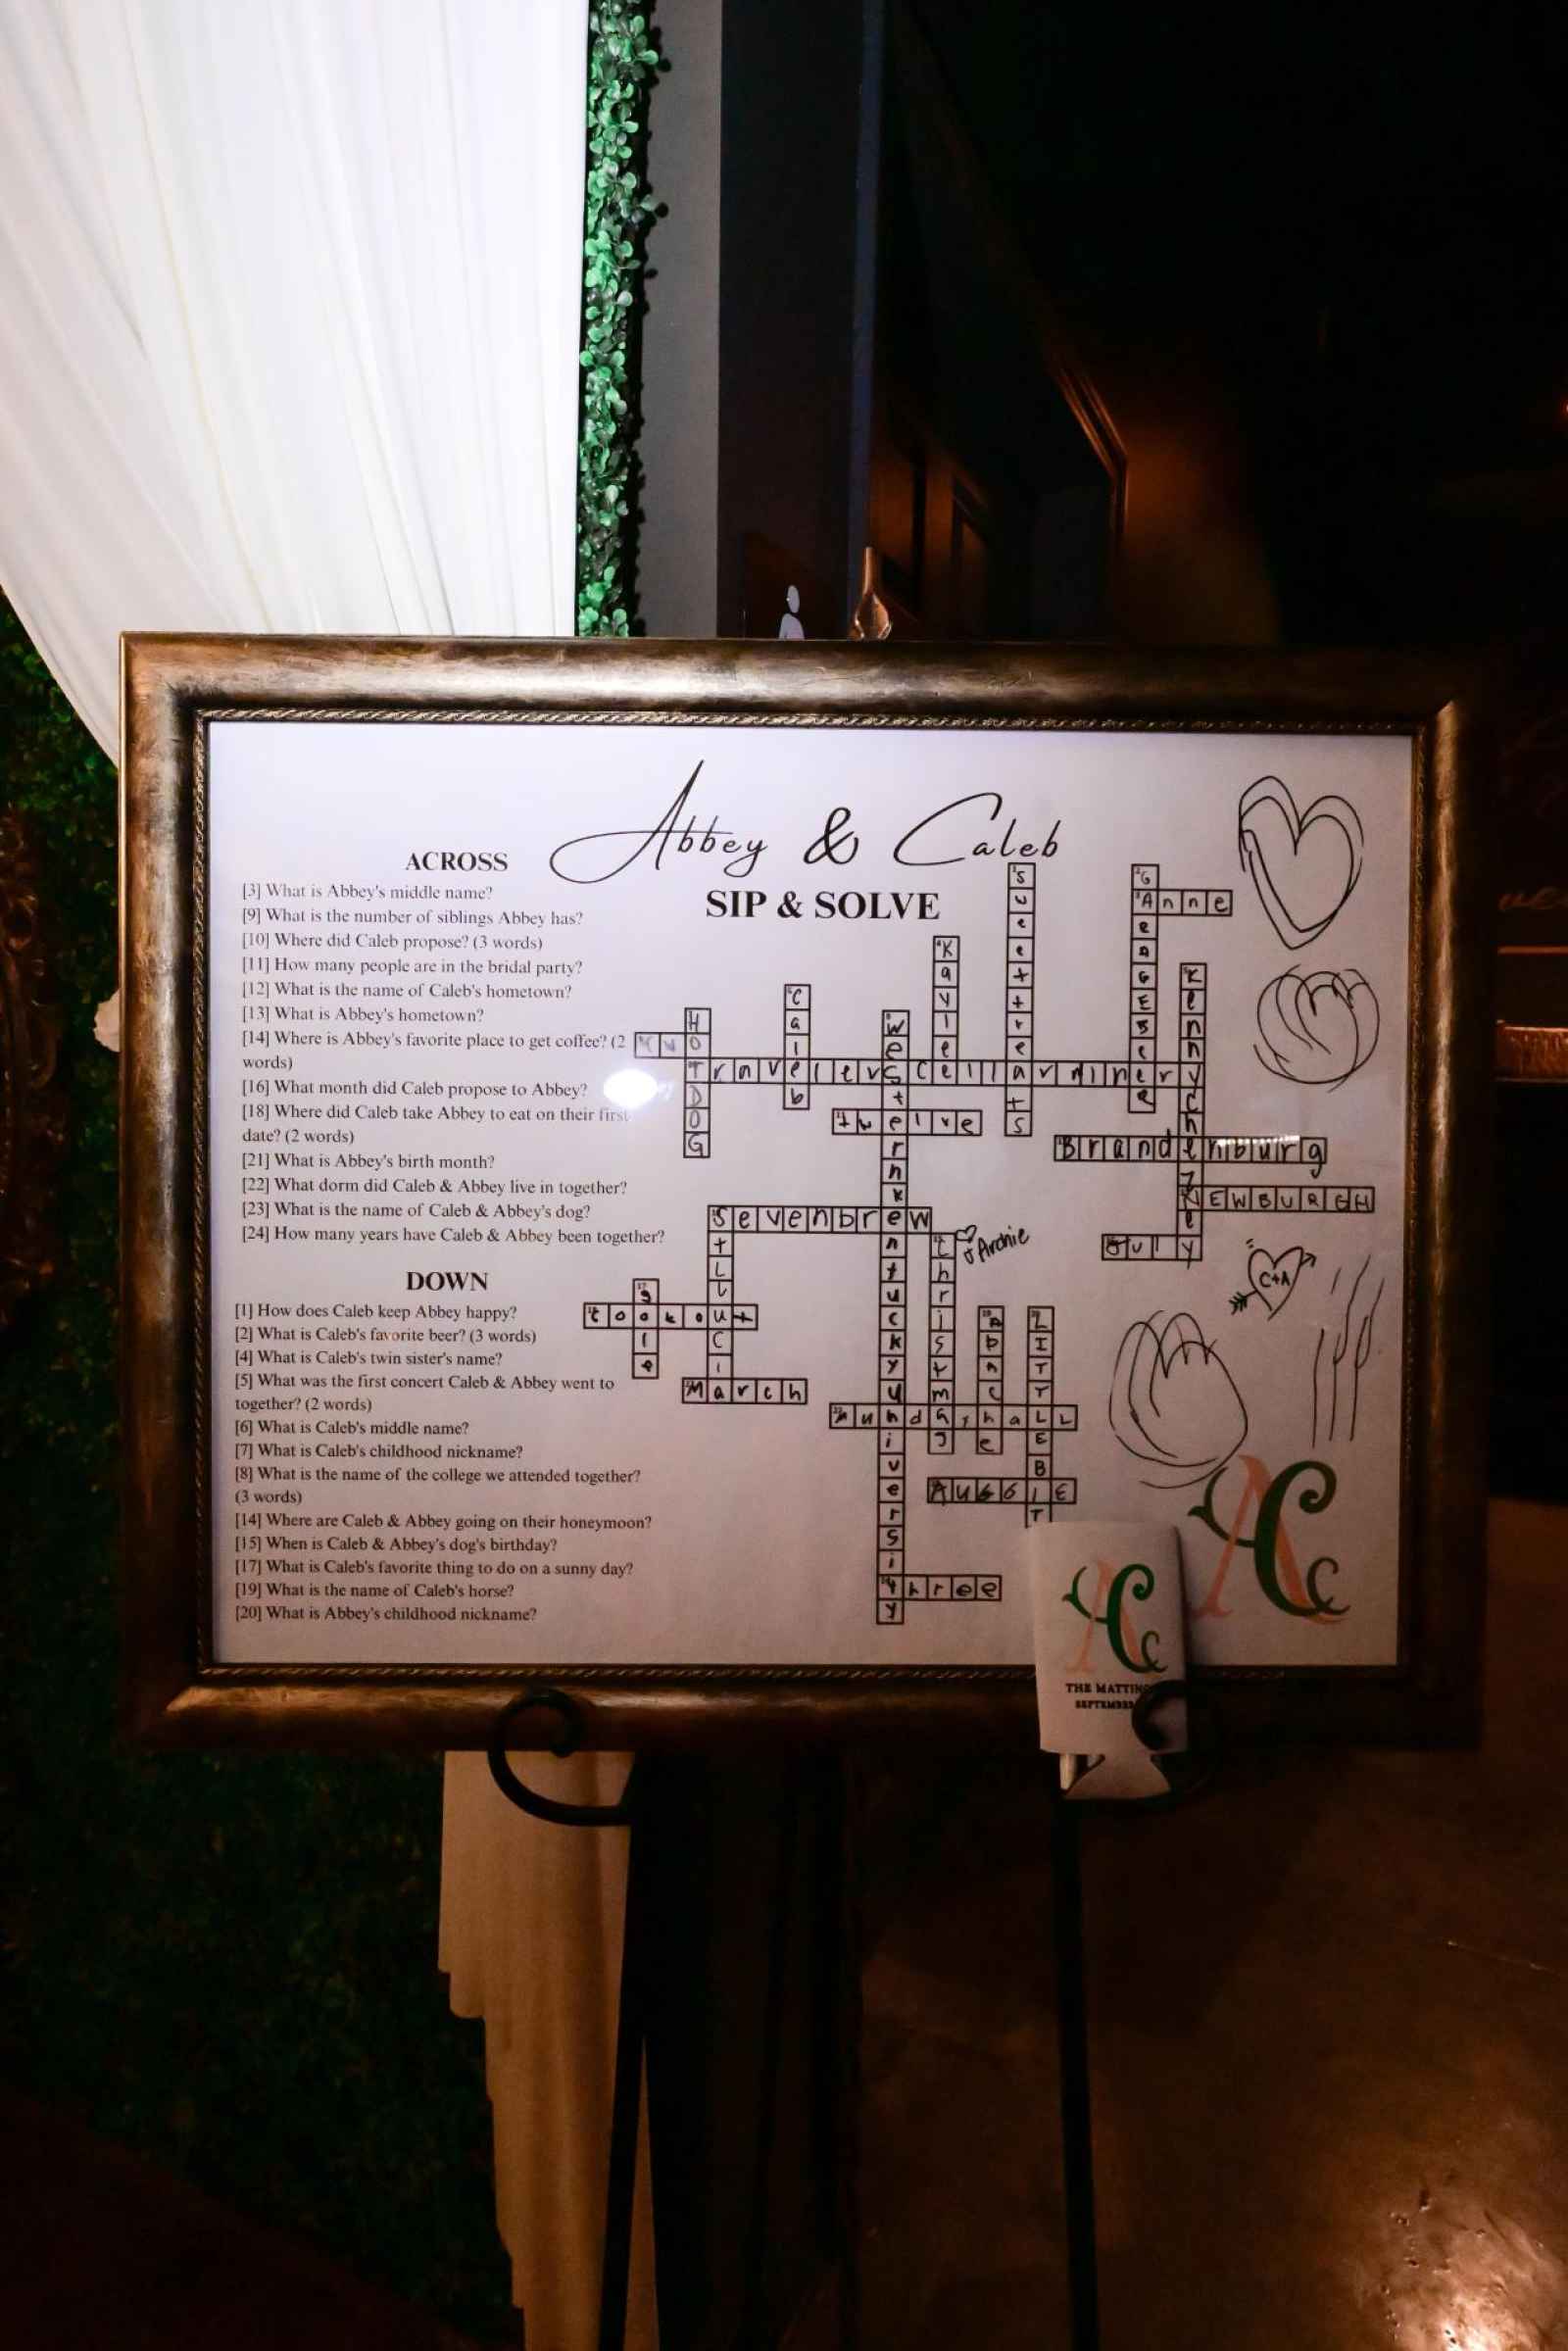 Abbey & Caleb
SIP & SOLVE
ACROSS
[3] What is Abbey's middle name?
[9] What is the number of siblings Abbey has?
[10] Where did Caleb propose? (3 words)
[11] How many people are in the bridal party?
[12] What is the name of Caleb's hometown?
[13] What is Abbey's hometown?
[14] Where is Abbey's favorite place to get coffee? (2
words)
[16] What month did Caleb propose to Abbey?
[18] Where did Caleb take Abbey to eat on their first
date? (2 words)
[21] What is Abbey's birth month?
[22] What dorm did Caleb & Abbey live in together?
[23] What is the name of Caleb & Abbey's dog?
[24] How many years have Caleb & Abbey been together?
DOWN
[1] How does Caleb keep Abbey happy?
[2] What is Caleb's favorite beer? (3 words)
[4] What is Caleb's twin sister's name?
[5] What was the first concert Caleb & Abbey went to
together? (2 words)
[6] What is Caleb's middle name?
[7] What is Caleb's childhood nickname?
[8] What is the name of the college we attended together?
(3 words)
[14] Where are Caleb & Abbey going on their honeymoon?
[15] When is Caleb & Abbey's dog's birthday?
[17] What is Caleb's favorite thing to do on a sunny day?
[19] What is the name of Caleb's horse?
[20] What is Abbey's childhood nickname?
Anne
twelve
Brandenburg
NEWBURGH
sevenbrew
March
AUGGIE
three
HOTDOG
Caleb
Kaylee
westernkentuckyuniversity
Kennychesney
stLUCia
christmas
LITTLEBIT
Archie
C+A
THE MATTING
SEPTEMBER